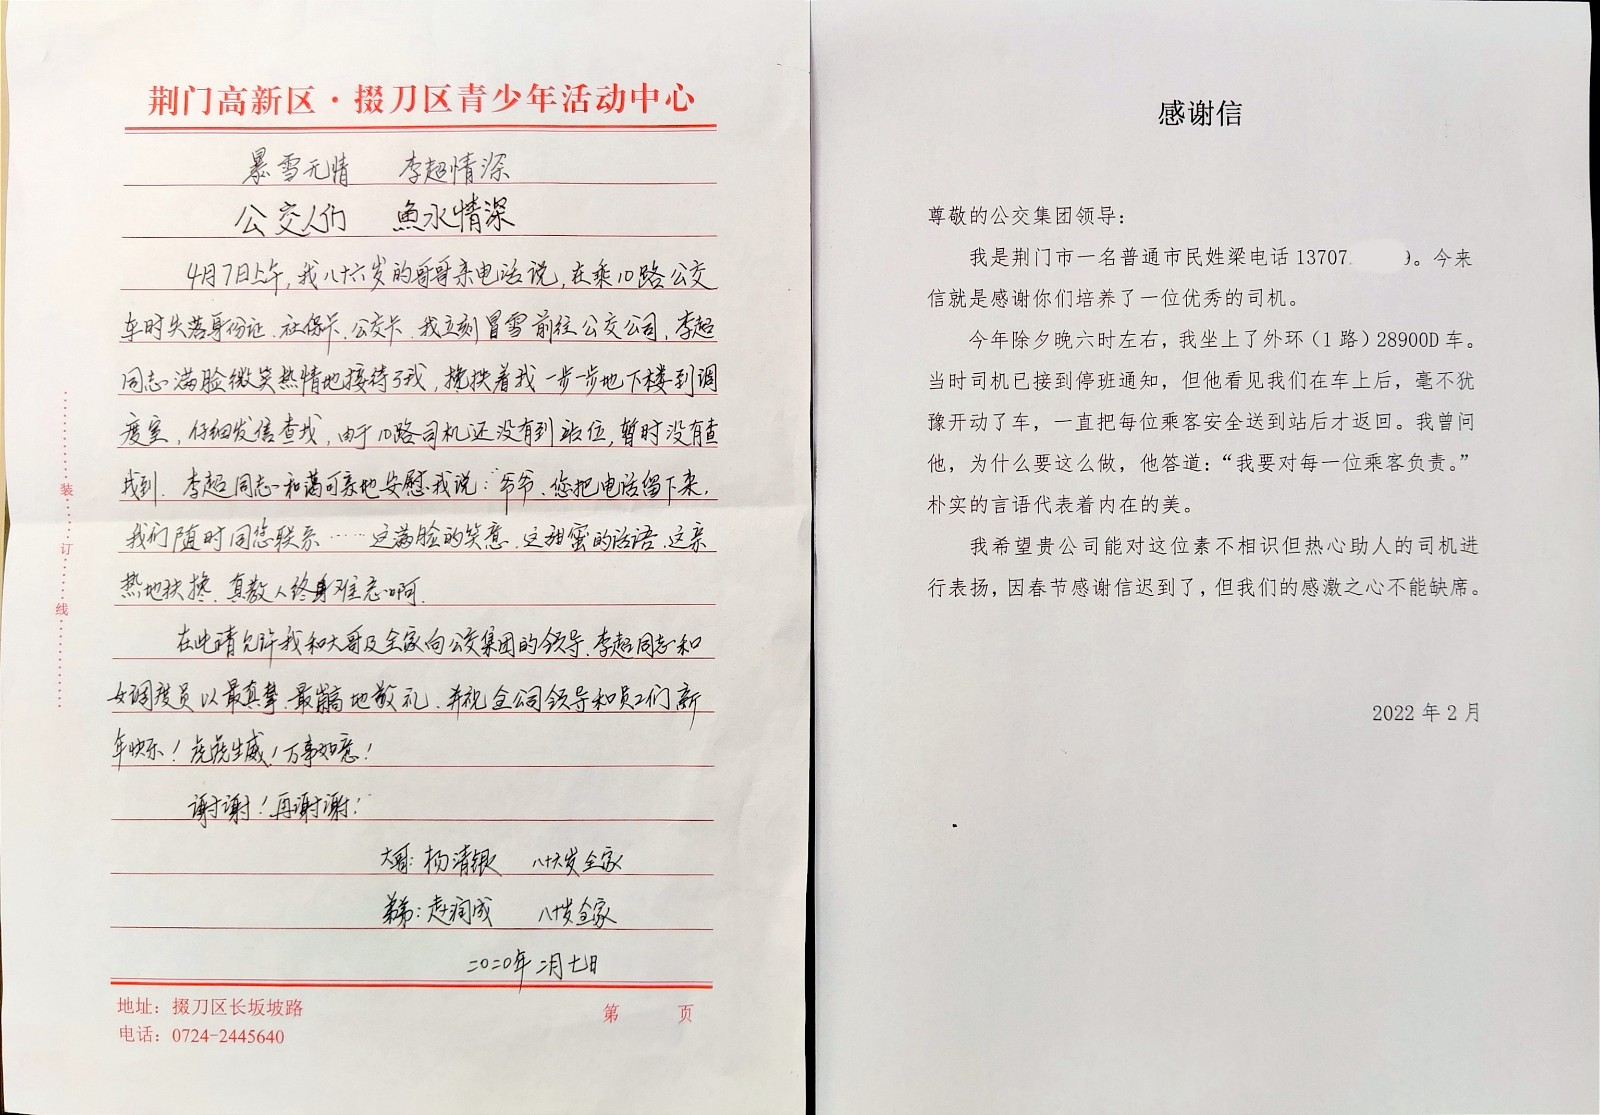 荆门高新区·掇刀区青少年活动中心
暴雪无情 李超情深
公交人们 鱼水情深
4月7日上午,我八十六岁的哥哥来电话说,在乘10路公交
车时失落身份证、社保卡、公交卡、我立刻冒雪前往公交公司,李超
同志满脸微笑热情地接待了我,搀扶着我一步一步地下楼到调
度室,仔细发信查找,由于10路司机还没有到站位,暂时没有查
找到.李超同志和蔼可亲地安慰我说:爷爷、您把电话留下来,
我们随时同您联系……这满脸的笑意、这甜蜜的话语、这亲
热地扶搀、真教人终身难忘啊.
在此请允许我和大哥及全家向公交集团的领导、李超同志和
女调度员以最真挚、最崇高地敬礼、并祝全公司领导和员工们新
年快乐!虎虎生威!万事如意!
谢谢!再谢谢!
大哥:杨清银 八十六岁全家
弟弟:赵润成 八十岁全家
二〇二〇年二月七日
地址:掇刀区长坂坡路
第 页
电话:0724-2445640
装
订
线
感谢信
尊敬的公交集团领导:
我是荆门市一名普通市民姓梁电话13707. 9。今来
信就是感谢你们培养了一位优秀的司机。
今年除夕晚六时左右,我坐上了外环(1路)28900D车。
当时司机已接到停班通知,但他看见我们在车上后,毫不犹
豫开动了车,一直把每位乘客安全送到站后才返回。我曾问
他,为什么要这么做,他答道:“我要对每一位乘客负责。”
朴实的言语代表着内在的美。
我希望贵公司能对这位素不相识但热心助人的司机进
行表扬,因春节感谢信迟到了,但我们的感激之心不能缺席。
2022年2月